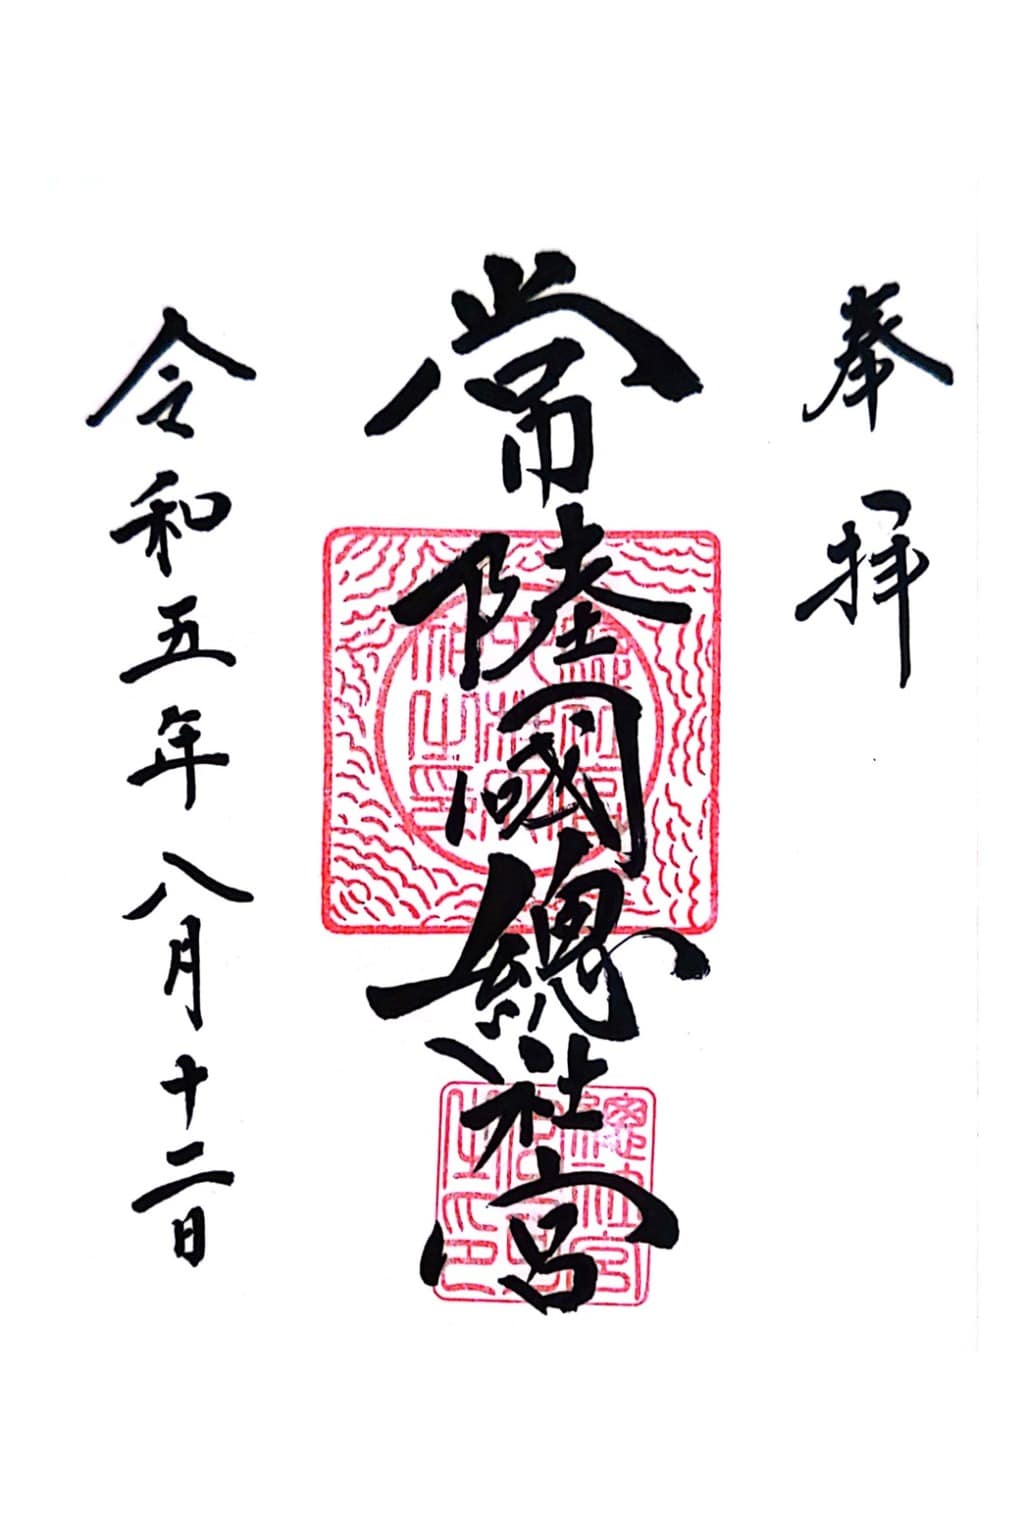 奉拝
常陸國總社宮
令和五年八月十二日